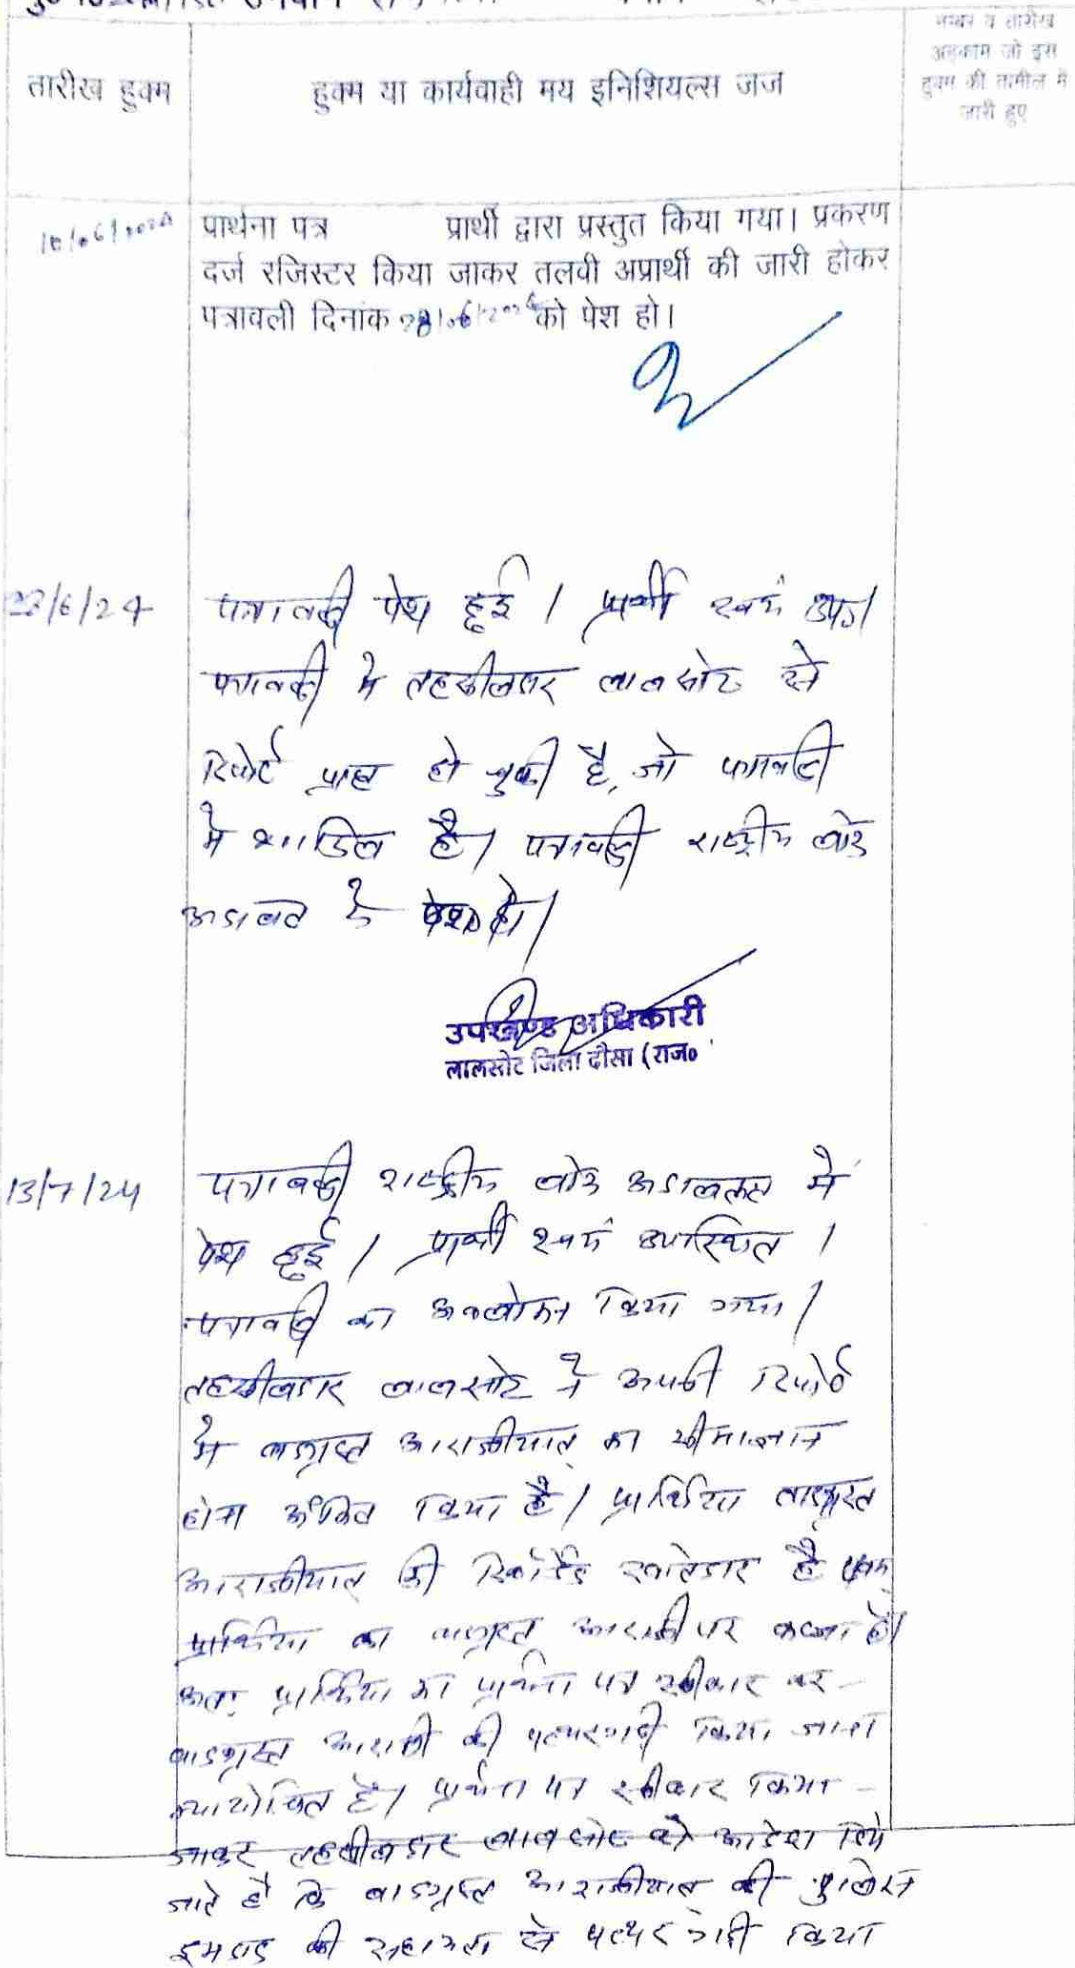 नम्बर व तारीख
अहकाम जो इस
हुक्म की तामील में
जारी हुए
तारीख हुक्म
हुक्म या कार्यवाही मय इनिशियल्स जज
प्रार्थना पत्र प्रार्थी द्वारा प्रस्तुत किया गया। प्रकरण
दर्ज रजिस्टर किया जाकर तलवी अप्रार्थी की जारी होकर
पत्रावली दिनांक को पेश हो।
28/6/24
पत्रावली पेश हुई। प्रार्थी स्वयं उप0।
पत्रावली में तहसीलदार लालसोट से
रिपोर्ट प्राप्त हो चुकी है, जो पत्रावली
में शामिल है। पत्रावली राष्ट्रीय लोक
अदालत में पेश हो।
उपखण्ड अधिकारी
लालसोट जिला दौसा (राज०
13/7/24
पत्रावली राष्ट्रीय लोक अदालत में
पेश हुई। प्रार्थी स्वयं उपस्थित।
पत्रावली का अवलोकन किया गया।
तहसीलदार लालसोट ने अपनी रिपोर्ट
में वादग्रस्त आराजीयात का सीमाज्ञान
होना अंकित किया है। प्रार्थिया वादग्रस्त
आराजीयात की रिकॉर्डेड खातेदार है एवं
प्रार्थिया का वादग्रस्त आराजी पर कब्जा है।
अतः प्रार्थिया का प्रार्थना पत्र स्वीकार कर
वादग्रस्त आराजी की पत्थरगढी किया जाना
न्यायोचित है। प्रार्थना पत्र स्वीकार किया
जाकर तहसीलदार लालसोट को आदेश दिये
जाते है कि वादग्रस्त आराजीयात की पुलिस
इमदाद की सहायता से पत्थर गढी किया